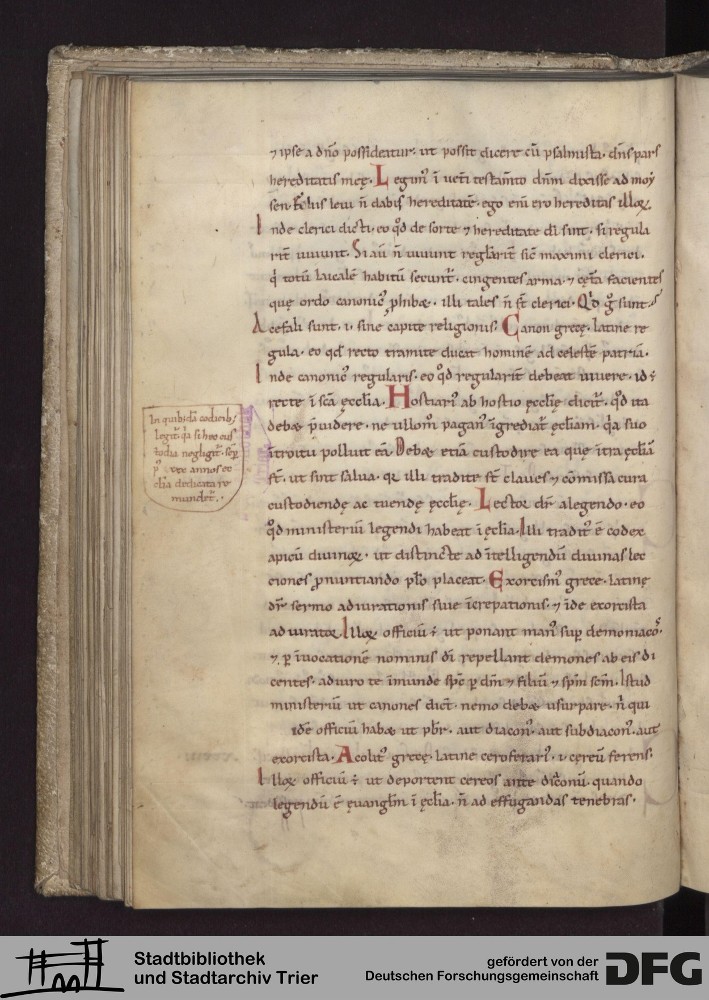 ⁊ ipse a dn̄o possideatur. ut possit dicere cū psalmista. dn̄s pars
hereditatis meę. Legimꝰ ī ueti testam̄to dn̄m dixisse ad moẏ
sen. Filiis leui n̄ dabis hereditatē. ego eni ero hereditas illoꝝ.
Inde clerici dicti. eo qd̄ de sorte ⁊ hereditate dī sint. si regula
rit̄ uiuunt. Si aū n̄ uiuunt regłarit̄ sic̄ maximi clerici.
q̇ totū laicalē habitū secunt̄. cingentes arma. ⁊ cęt̄a facientes
quę ordo canonicꝰ ꝓhibꝫ. illi tales n̄ st̄ clerici. Qd̄ g̊ sunt?
Acefali sunt. i. sine capite religionis. Canon gręcę. latine re
gula. eo qd̄ recto tramite ducat hominē ad cęlestē patriā.
Inde canonicꝰ regularis. eo qd̄ regularit̄ debeat uiuere. id ē
recte ī sc̄a ęcclia. Hostiariꝰ ab hostio ęcclię dicit̄. qd̄ ita
debꝫ p̄uidere. ne ullom̄ paganꝰ īgrediat̄ ęcliam. q̇a suo
introitu polluit eā. Debꝫ etiā custodire ea quę ītra ęcliā
st̄. ut sint salua. qr illi tradite st̄ claues ⁊ cōmissa cura
custodiendę ac tuendę ęcclię. Lector dr̄ a legendo. eo
qd̄ ministeriū legendi habeat ī ęclia. Illi traditꝰ ē codex
apicū diuinoꝝ. ut distincte ad ītelligendū diuinas lec
ciones ꝓnuntiando pło placeat. Exorcismꝰ grece. latinę
dr̄ sermo adiurationis siue īcrepationis. ⁊ īde exorcista
adiurator. Illoꝝ officiū ē ut ponant manꝰ sup̄ demoniacos.
⁊ ꝑ īuocationē nominis dī repellant demones ab eis di
centes. adiuro te īmunde sp̄c ꝑ dm̄ ⁊ filiū ⁊ sp̄m scm̄. Istud
ministeriū ut canones dict̄. nemo debꝫ usurpare. n̄ qui
idē officiū habꝫ ut pbr̄. aut diaconꝰ. aut subdiaconꝰ. aut
exorcista. Acolitꝰ gręcę. latine ceroferariꝰ. i. cęreū ferens.
Illoꝝ officiū ē ut deportent cereos ante diconū. quando
legendū ē ęuangłm ī ęclia. n̄ ad effugandas tenebras.
In quibꝰdā codicibꝰ
legit̄. q̇a si hęc cus
todia negligit̄. sep̄
annos ec
clia dedicata re
mundet̄.
Stadtbibliothek
und Stadtarchiv Trier
gefördert von der
Deutschen Forschungsgemeinschaft
DFG